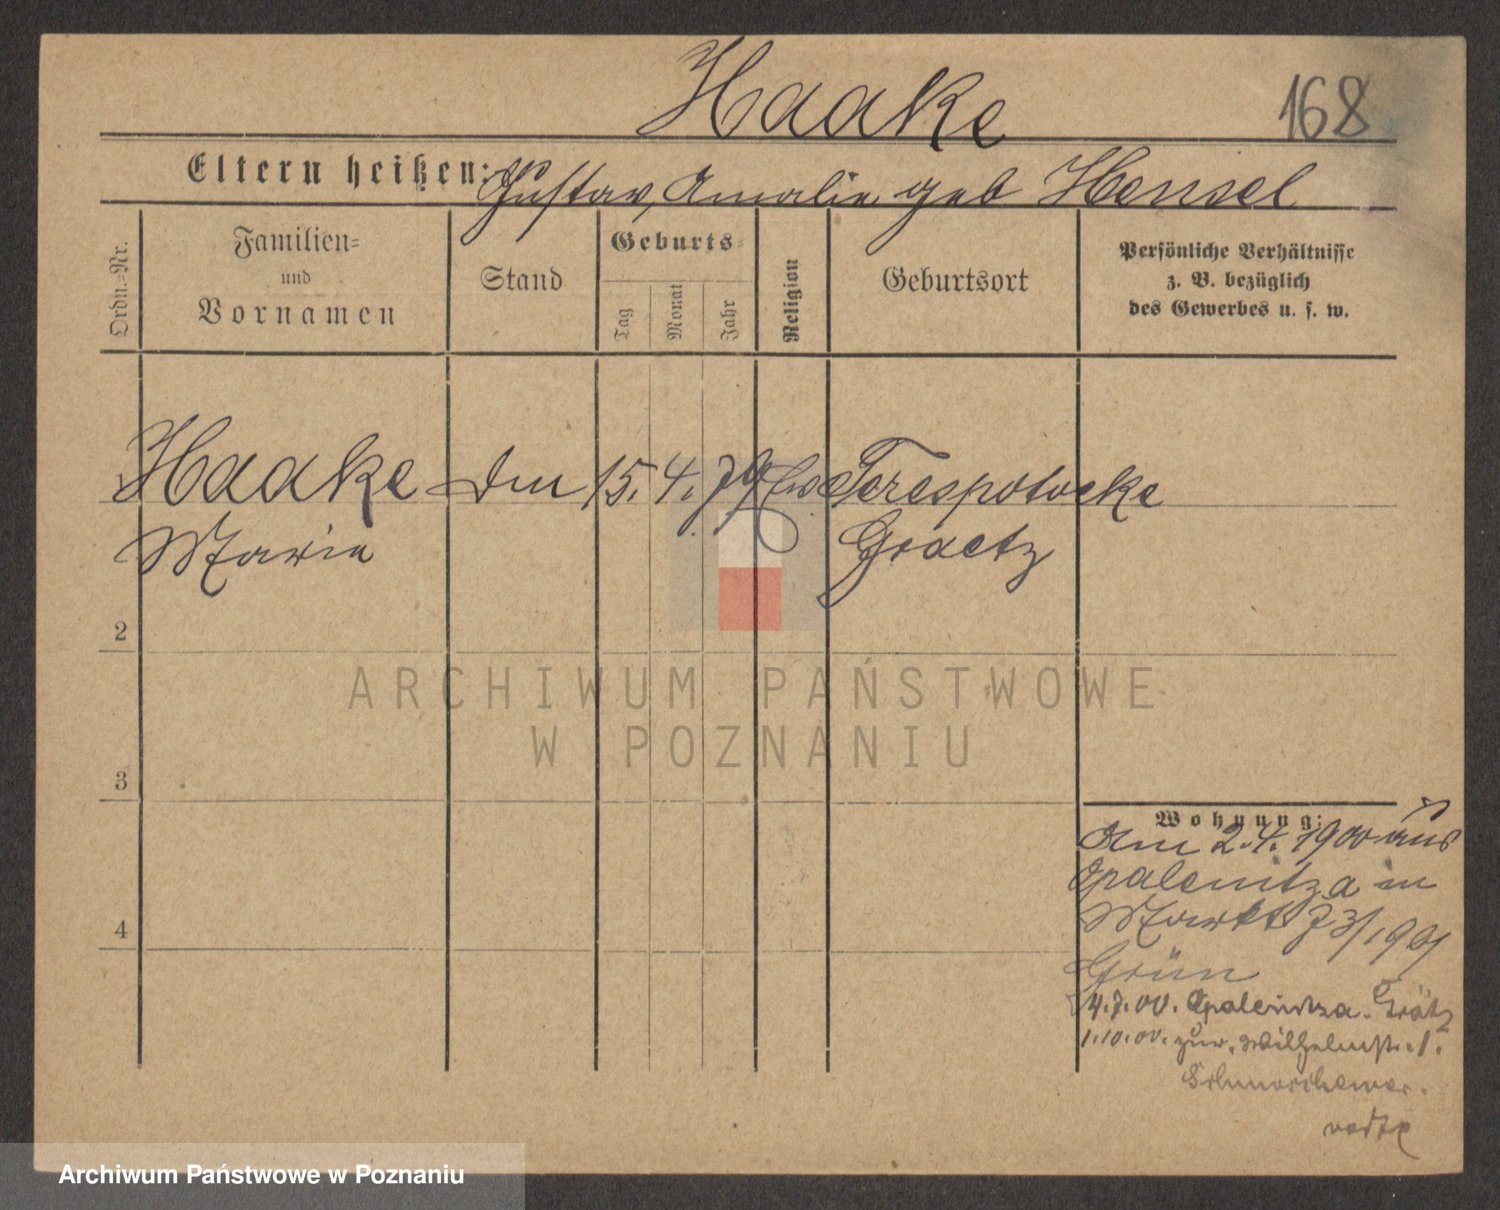 Haake
168
Eltern heißen: Gustav, Amalie geb Hensel
Ordn.-Nr.
Familien- und Vornamen
Stand
Geburts-
Tag
Monat
Jahr
Religion
Geburtsort
Persönliche Verhältnisse
z. B. bezüglich
des Gewerbes u. s. w.
Haake
15. 4. 79
Terespotocke
Marie
Graetz
2
ARCHIWUM PAŃSTWOWE
W POZNANIU
3
Wohnung:
Am 2.4.1900 aus
Opalenitza in
Markt
4
Grün
4.7.00. Opalenitza. Grätz
1.10.00. zur. Wilhelmstr. 1.
Archiwum Państwowe w Poznaniu